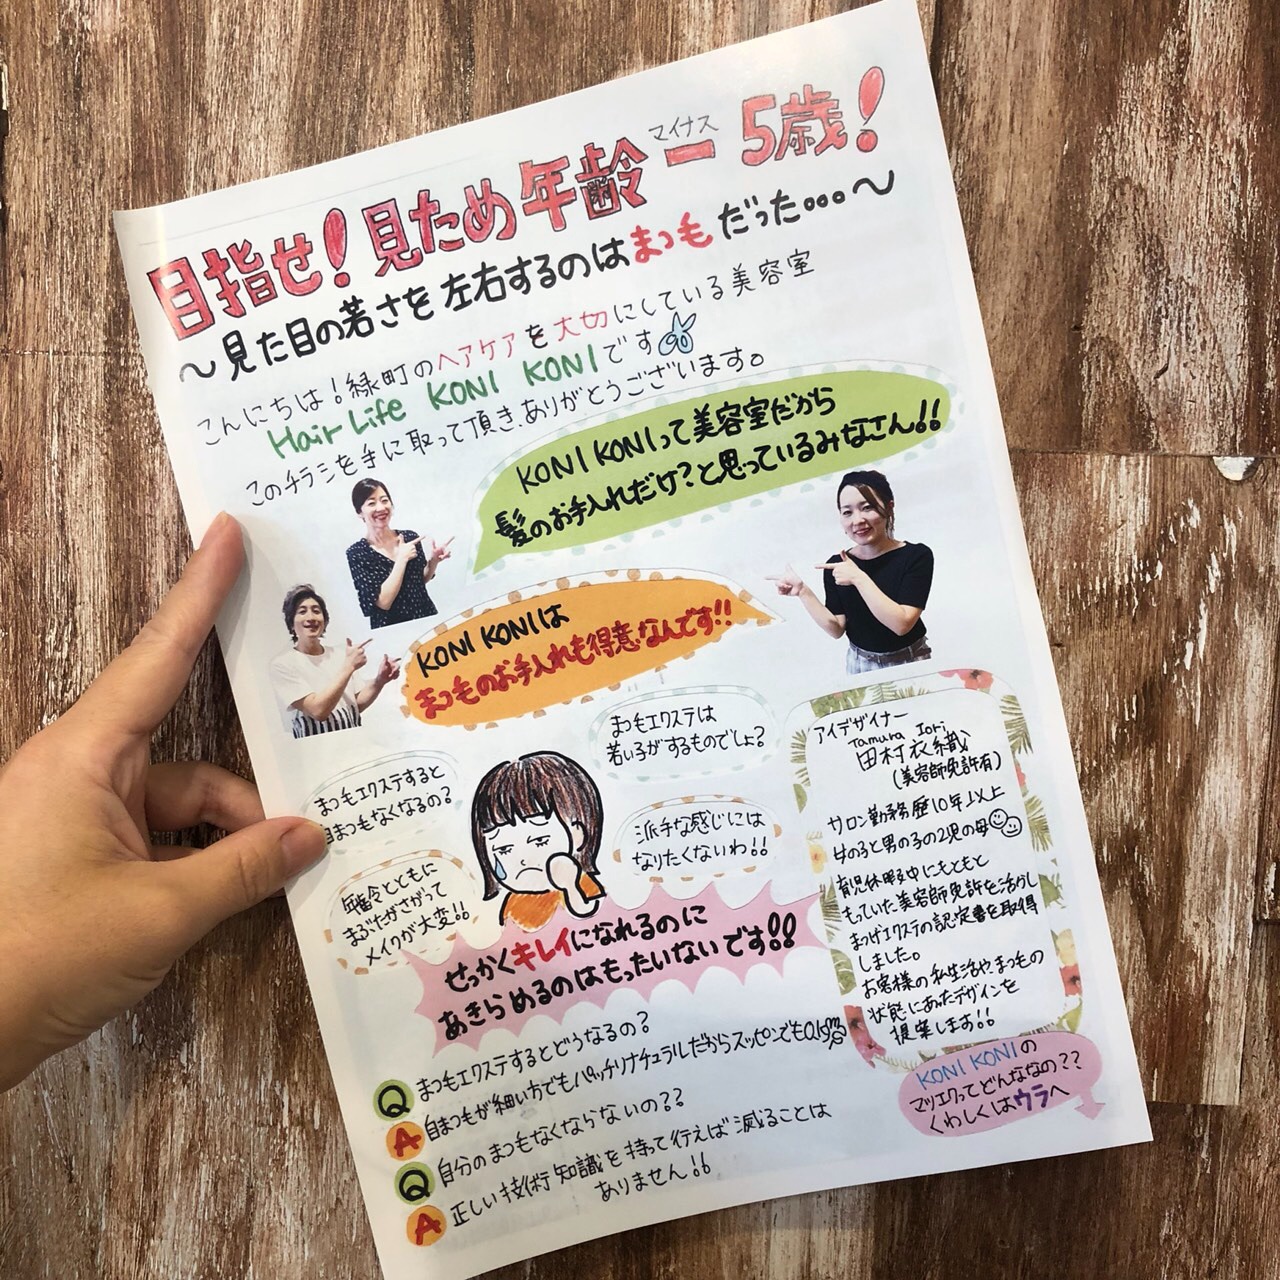 目指せ！見ため年齢マイナスー5歳！
〜見た目の若さを左右するのはまつ毛だった…〜
こんにちは！緑町のヘアケアを大切にしている美容室
Hair Life KONI KONIです
このチラシを手に取って頂き、ありがとうございます。
KONI KONIって美容室だから
髪のお手入れだけ？と思っているみなさん!!
KONI KONIは
まつ毛のお手入れも得意なんです!!
まつ毛エクステは
若い子がするものでしょ？
まつ毛エクステすると
自まつ毛なくなるの？
派手な感じには
なりたくないわ!!
年齢とともに
まぶたがさがって
メイクが大変!!
せっかくキレイになれるのに
あきらめるのはもったいないです!!
アイデザイナー
Tamura Iori
田村衣織
(美容師免許有)
サロン勤務歴10年以上
女の子と男の子の2児の母
育児休暇中にもともと
もっていた美容師免許を活かし
まつげエクステの認定書を取得
しました。
お客様の私生活や、まつ毛の
状態にあったデザインを
提案します!!
Q まつ毛エクステするとどうなるの？
A 自まつ毛が細い方でもパッチリナチュラルだからスッピンでもOK
Q 自分のまつ毛なくならないの？？
A 正しい技術、知識を持って行えば減ることは
ありません!!
KONI KONIの
マツエクってどんななの？？
くわしくはウラへ